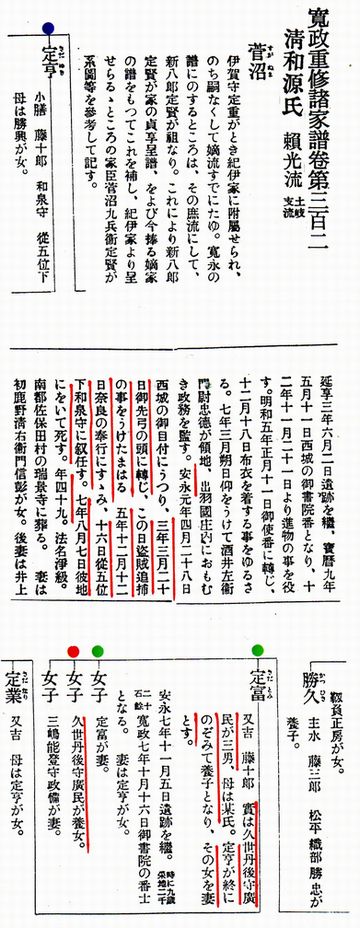 寬政重修諸家譜卷第三百二
清和源氏 賴光流 土岐支流
菅沼
すがぬま
伊賀守定重がとき紀伊家に附屬せられ、
のち嗣なくして嫡流すでにたゆ。寬永の
譜にのするところは、その庶流にして、
新八郎定賢が祖なり。これにより新八郎
定賢が家の貞享呈譜、をよび今捧る嫡家
の譜をもつてこれを補し、紀伊家より呈
せらるゝところの家臣菅沼九兵衞定賢が
系圖等を參考して記す。
定亨
小膳 藤十郎 和泉守 從五位下
母は勝興が女。
延享三年六月二日遺跡を繼、寶曆九年
五月十一日西城の御書院番となり、十
二年十一月二十一日より進物の事を役
す。明和五年正月十一日御使番に轉じ、
十二月十八日布衣を着する事をゆるさ
る。七年三月朔日仰をうけて酒井左衞
門尉忠德が領地、出羽國庄內におもむ
き政務を監す。安永元年四月二十八日
西城の御目付にうつり、三年三月二十
日御先弓の頭に轉じ、この日盜賊追捕
の事をうけたまはる 五年十二月十二
日奈良の奉行にすゝみ、十六日從五位
下和泉守に叙任す。七年八月七日彼地
にをいて死す。年四十九。法名淨級。
南都佐保田村の瑞景寺に葬る。 妻は
初鹿野淸右衞門信彭が女。後妻は井上
靱負正房が女。
勝久
かつひさ
主水 藤三郎 松平織部勝忠が
養子。
定富
さだとみ
又吉 藤十郎 實は久世丹後守廣
民が三男、母は某氏。定亨が終に
のぞみて養子となり、その女を妻
とす。
安永七年十一月五日遺跡を繼。時に九歲 采地二千
二十石餘 寬政七年十月十六日御書院の番士
となる。 妻は定亨が女。
女子
定富が妻。
女子
久世丹後守廣民が養女。
女子
三嶋能登守政備が妻。
定業
さだなり
又吉 母は定亨が女。